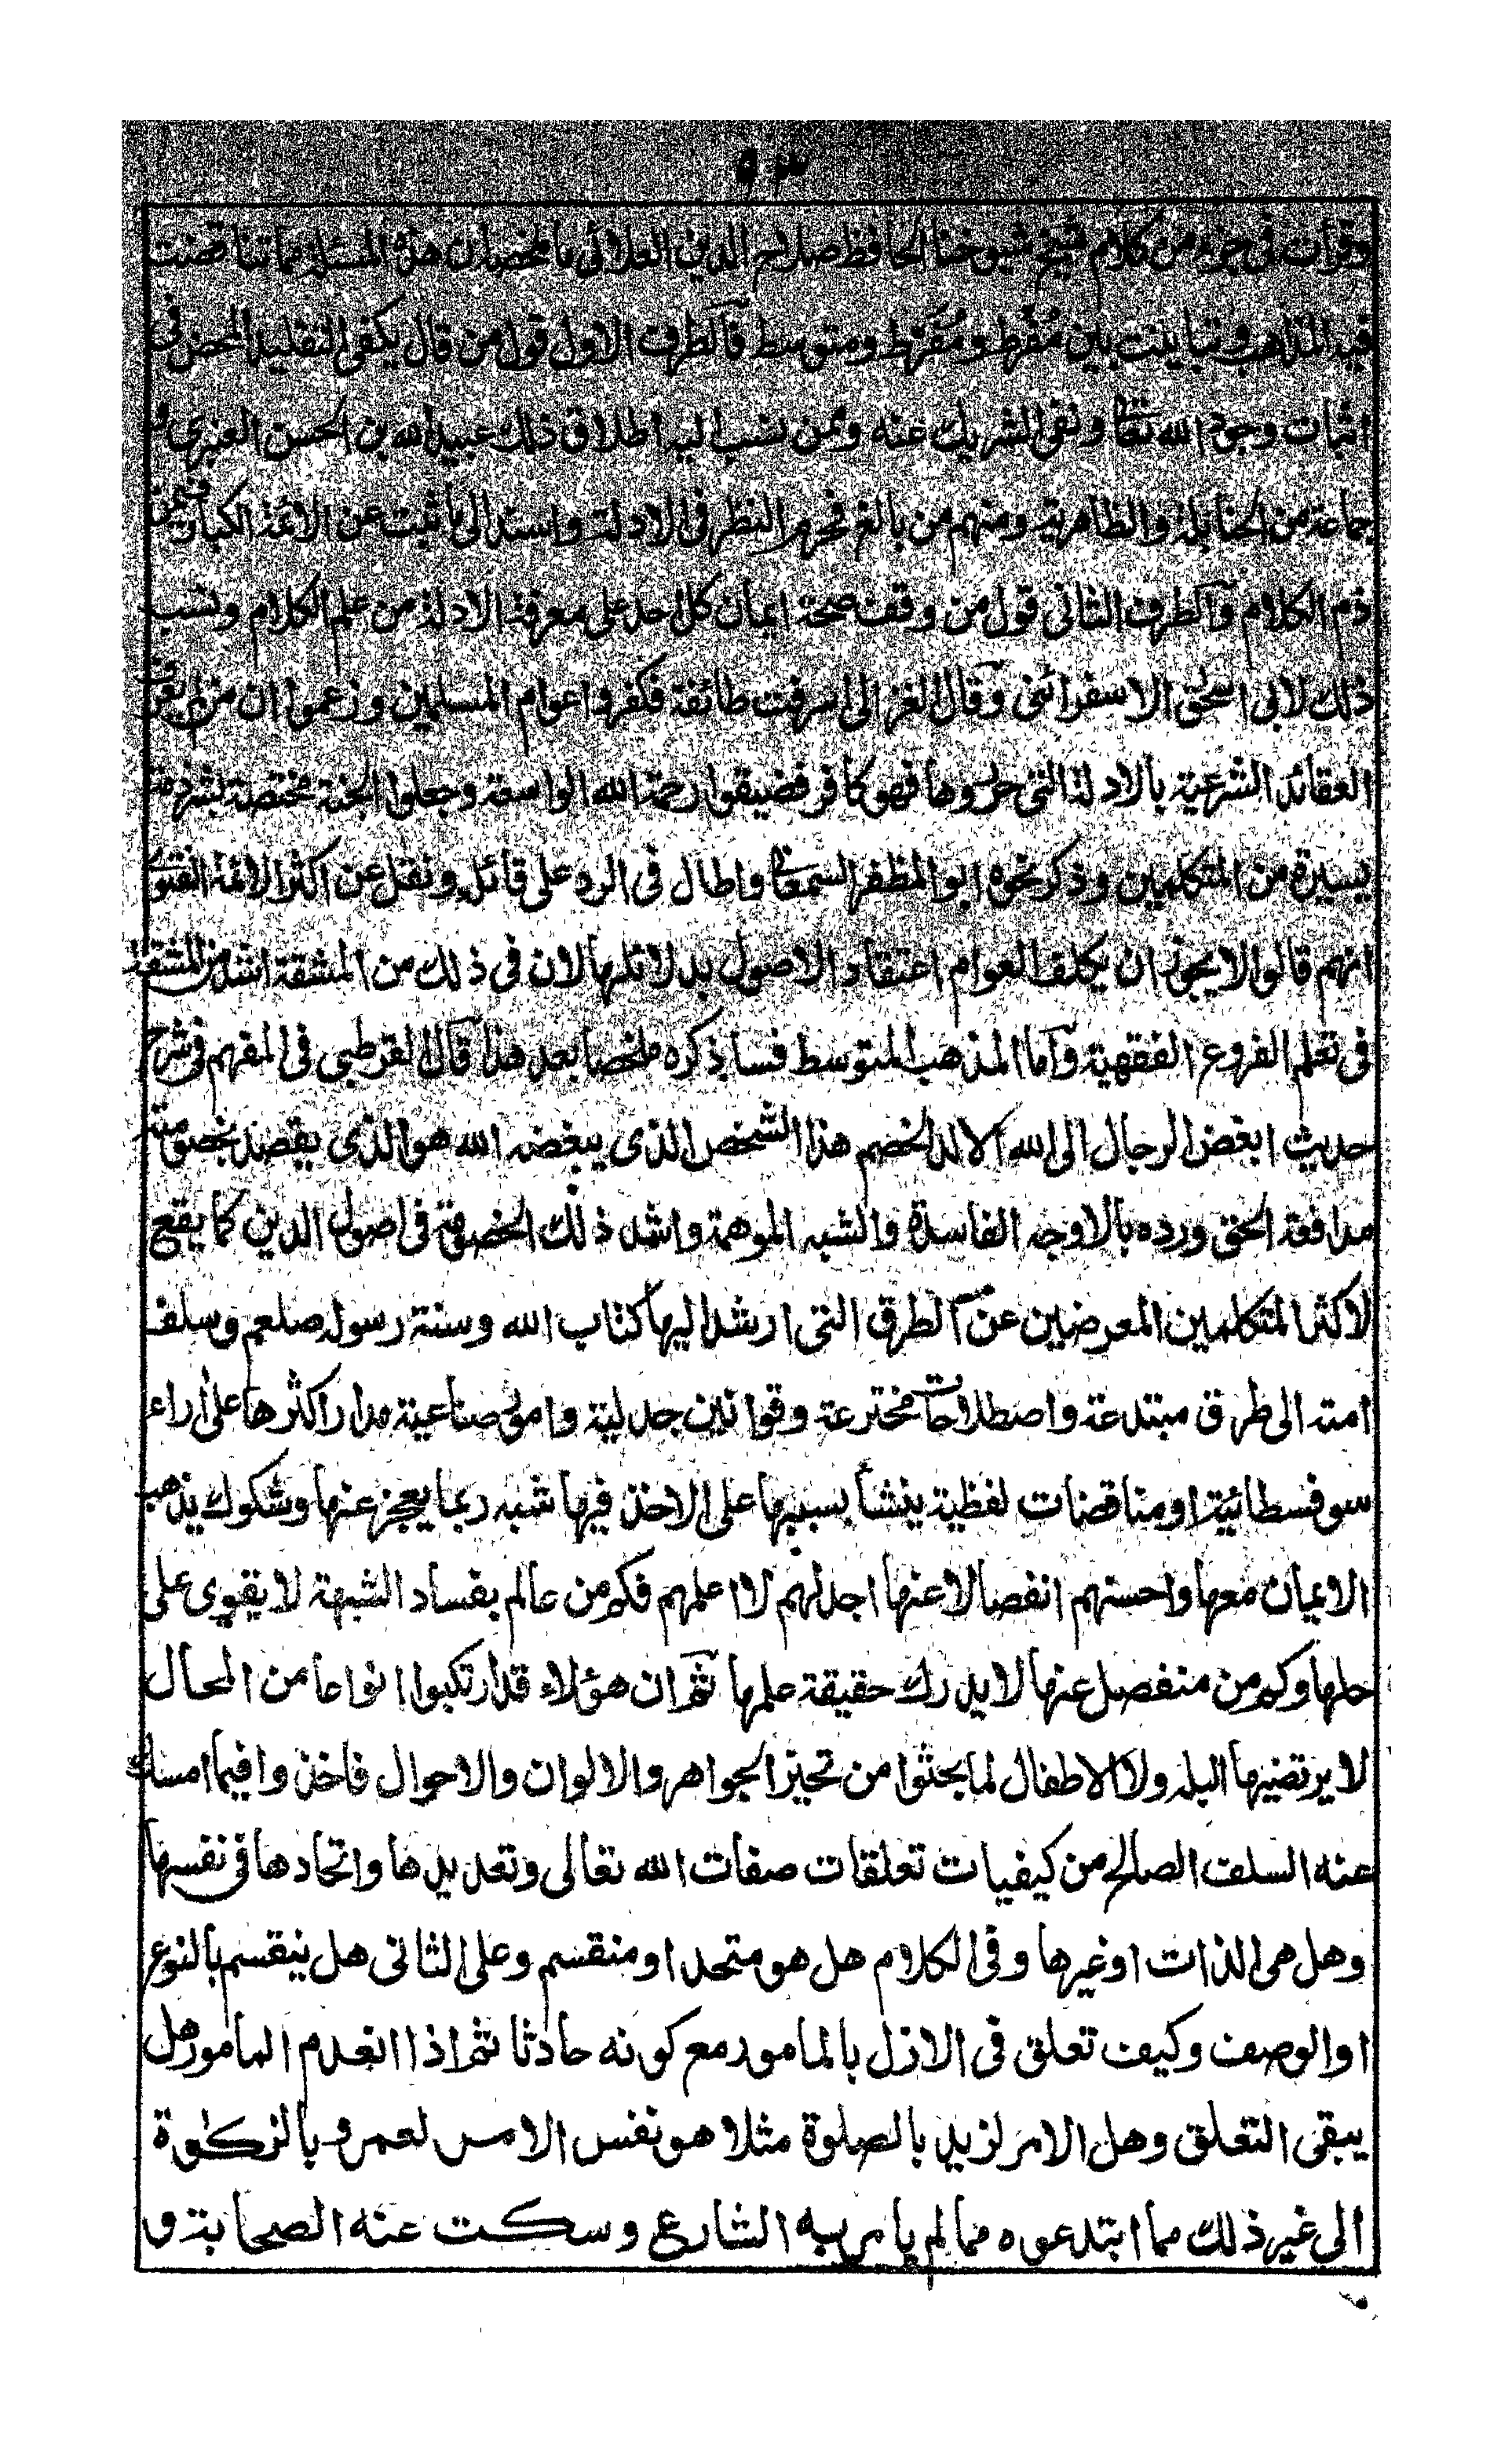 ٩٣
وقرأت فى جزء من كلام شيخ شيوخنا الحافظ صلاح الدين العلائى ما ملخصه ان هذه المسئلة مما تناقضت
فيه المذاهب وتباينت بين مُفْرِط ومُفَرِّط ومتوسط فالطرف الاول قول من قال يكفى التقليد المحض فى
اثبات وجود الله تعا ونفى الشريك عنه وممن نسب اليه اطلاق ذلك عبيد الله بن الحسن العنبرى و
جماعة من الحنابلة والظاهرية ومنهم من بالغ فحرم النظر فى الادلة واستند الى ما ثبت عن الائمة الكبار من
ذم الكلام والطرف الثانى قول من وقف صحة ايمان كل احد على معرفة الادلة من علم الكلام ونسب
ذلك لابى اسحق الاسفرائنى وقال الغزالى اسرفت طائفة فكفروا عوام المسلمين وزعموا ان من لم يعرف
العقائد الشرعية بالادلة التى حرروها فهو كافر فضيقوا رحمة الله الواسعة وجعلوا الجنة مختصة بشرذمة
يسيرة من المتكلمين وذكر نحوه ابو المظفر السمعانى واطال فى الرد على قائله ونقل عن اكثر الائمة الفتوى
انهم قالوا لا يجوز ان يكلف العوام اعتقاد الاصول بدلائلها لان فى ذلك من المشقة اشد من المشقة
فى تعلم الفروع الفقهية واما المذهب المتوسط فساذكره ملخصا بعد هذا وقال القرطبى فى المفهم فى شرح
حديث ابغض الرجال الى الله الالد الخصم هذا الشخص الذى يبغضه الله هو الذى يقصد بخصومته
مدافعة الحق ورده بالاوجه الفاسدة والشبه الموهمة واشد ذلك الخصومة فى اصول الدين كما يقع
لاكثر المتكلمين المعرضين عن الطرق التى ارشد اليها كتاب الله وسنة رسوله صلعم وسلف
امته الى طرق مبتدعة واصطلاحات مخترعة وقوانين جدلية وامور صناعية مدار اكثرها على اراء
سوفسطائية او مناقضات لفظية ينشأ بسببها على الاخذ فيها شبه ربما يعجز عنها وشكوك يذهب
الايمان معها واحسنهم انفصالا عنها اجدلهم لا اعلمهم فكم من عالم بفساد الشبهة لا يقوى على
حلها وكم من منفصل عنها لا يدرك حقيقة علمها ثم ان هؤلاء قد ارتكبوا انواعا من المحال
لا يرتضيها البله ولا الاطفال لما بحثوا من تحيز الجواهر والالوان والاحوال فاخذوا فيما امسك
عنه السلف الصالح من كيفيات تعلقات صفات الله تعالى وتعديدها واتحادها فى نفسها
وهل هى الذات او غيرها وفى الكلام هل هو متحد او منقسم وعلى الثانى هل ينقسم بالنوع
او الوصف وكيف تعلق فى الازل بالمامور مع كونه حادثا ثم اذا انعدم المامور هل
يبقى التعلق وهل الامر لزيد بالصلوة مثلا هو نفس الامر لعمرو بالزكوة
الى غير ذلك مما ابتدعوه مما لم يامر به الشارع وسكت عنه الصحابة و